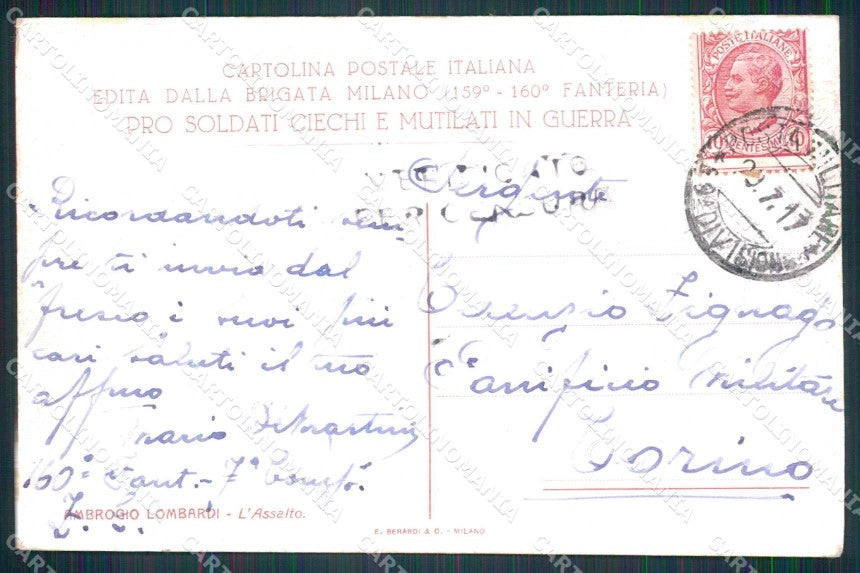 CARTOLINA POSTALE ITALIANA
EDITA DALLA BRIGATA MILANO (159º - 160º FANTERIA)
PRO SOLDATI CIECHI E MUTILATI IN GUERRA
POSTE ITALIANE
VERIFICATO
PER CENSURA
29.7.17
Ricordandoti sem
pre ti invio dal
fresco i suoi più
cari saluti il tuo
affmo
Mario
160º Fant. - 7ª Comp.
Z. G.
Sergente
Tignago
Panificio Militare
Torino
AMBROGIO LOMBARDI - L'Assalto.
E. BERARDI & C. - MILANO
CARTOLINOMANIA